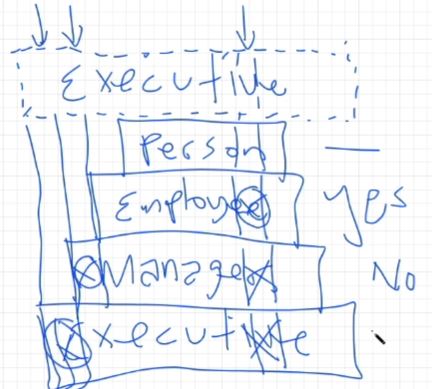 Executive
Person —
Employee Yes
Manager No
Executive